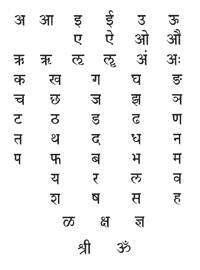 अ आ इ ई उ ऊ
ए ऐ ओ औ
ऋ ॠ ऌ ॡ अं अः
क ख ग घ ङ
च छ ज झ ञ
ट ठ ड ढ ण
त थ द ध न
प फ ब भ म
य र ल व
श ष स ह
ळ क्ष ज्ञ
श्री ॐ